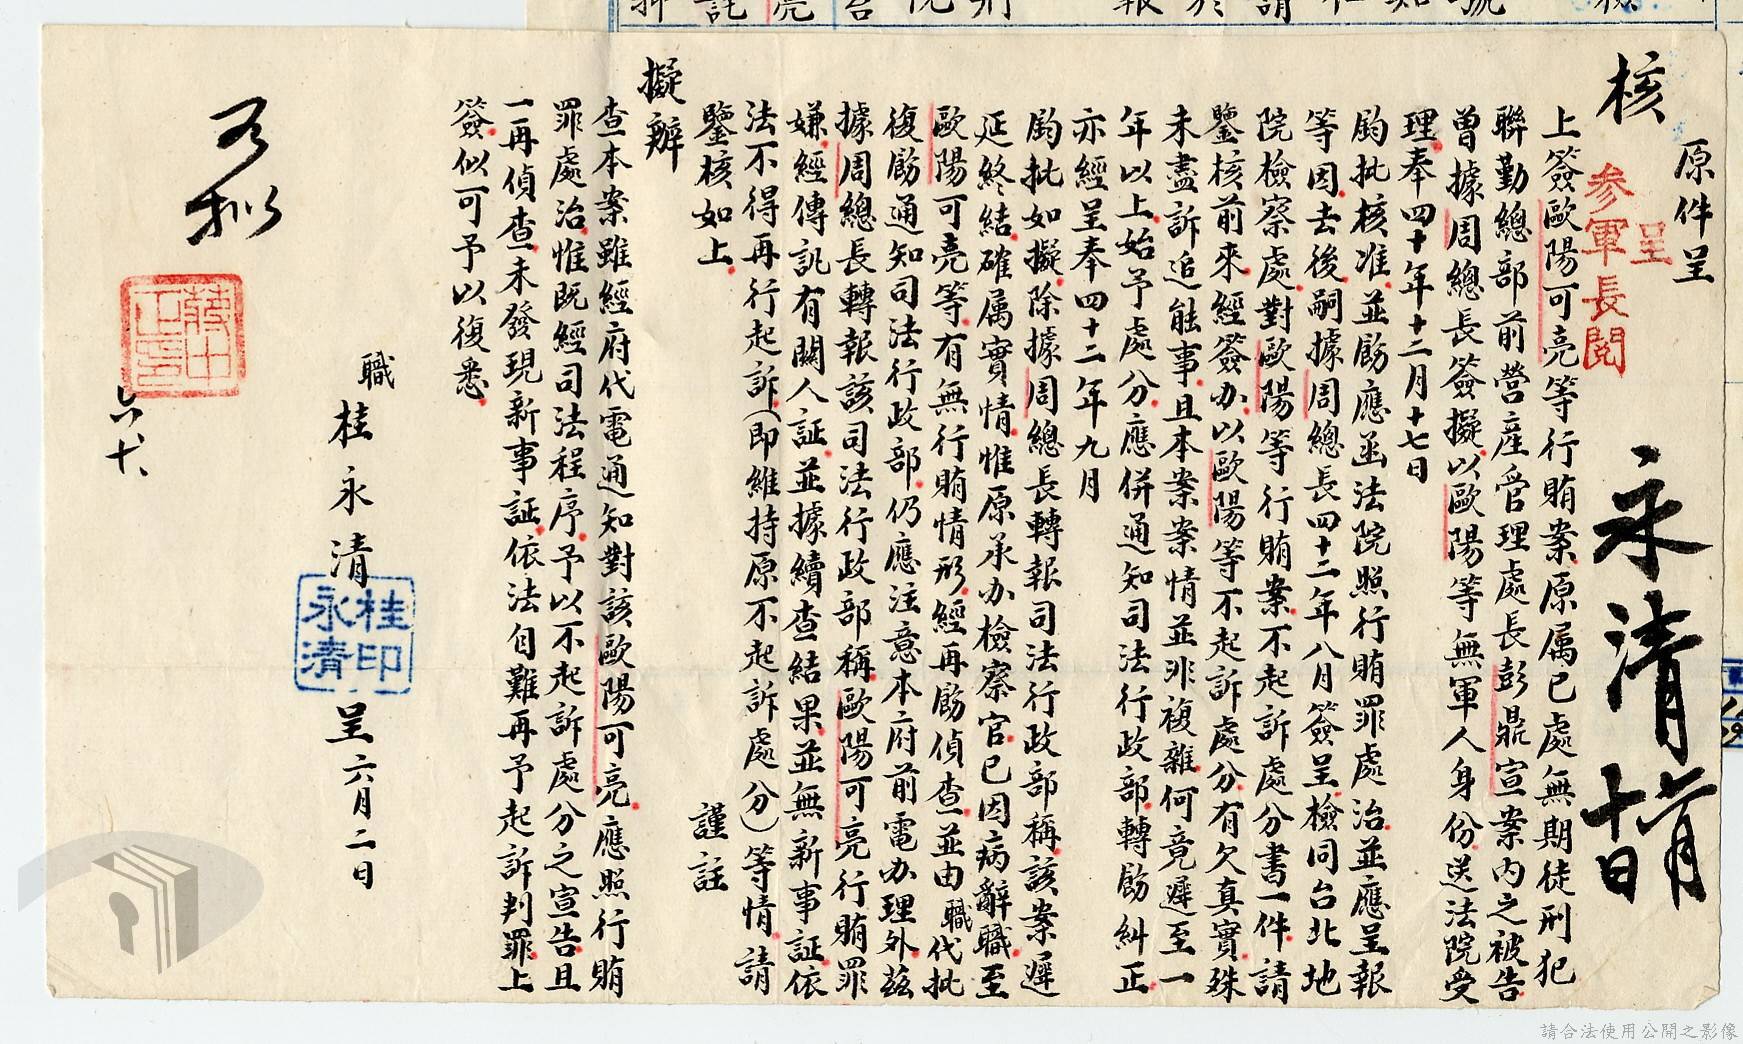 核
原件呈
呈
參軍長閱
永清
六月
十日
上簽歐陽可亮等行賄案原属已處無期徒刑犯
聯勤總部前營產管理處長彭鼎宣案內之被告
曾據周總長簽擬以歐陽等無軍人身份送法院受
理奉四十年十二月十七日
鈞批核准並飭應函法院照行賄罪處治並應呈報
等因去後嗣據周總長四十二年八月簽呈檢同台北地
院檢察處對歐陽等行賄案不起訴處分書一件請
鑒核前來經簽办以歐陽等不起訴處分有欠真實殊
未盡訴追能事且本案案情並非複雜何竟遲至一
年以上始予處分應併通知司法行政部轉飭糾正
亦經呈奉四十二年九月
鈞批如擬除據周總長轉報司法行政部稱該案遲
延終結確属實情惟原承办檢察官已因病辭職至
歐陽可亮等有無行賄情形經再飭偵查並由職代批
復飭通知司法行政部仍應注意本府前電办理外茲
據周總長轉報該司法行政部稱歐陽可亮行賄罪
嫌經傳訊有關人証並據續查結果並無新事証依
法不得再行起訴(即維持原不起訴處分)等情請
鑒核如上
謹註
擬辦
查本案雖經府代電通知對該歐陽可亮應照行賄
罪處治惟既經司法程序予以不起訴處分之宣告且
一再偵查未發現新事証依法自難再予起訴判罪上
簽似可予以復悉
職
桂永清
呈六月二日
桂永清印
如擬
蔣中正印
六、十、
請合法使用公開之影像